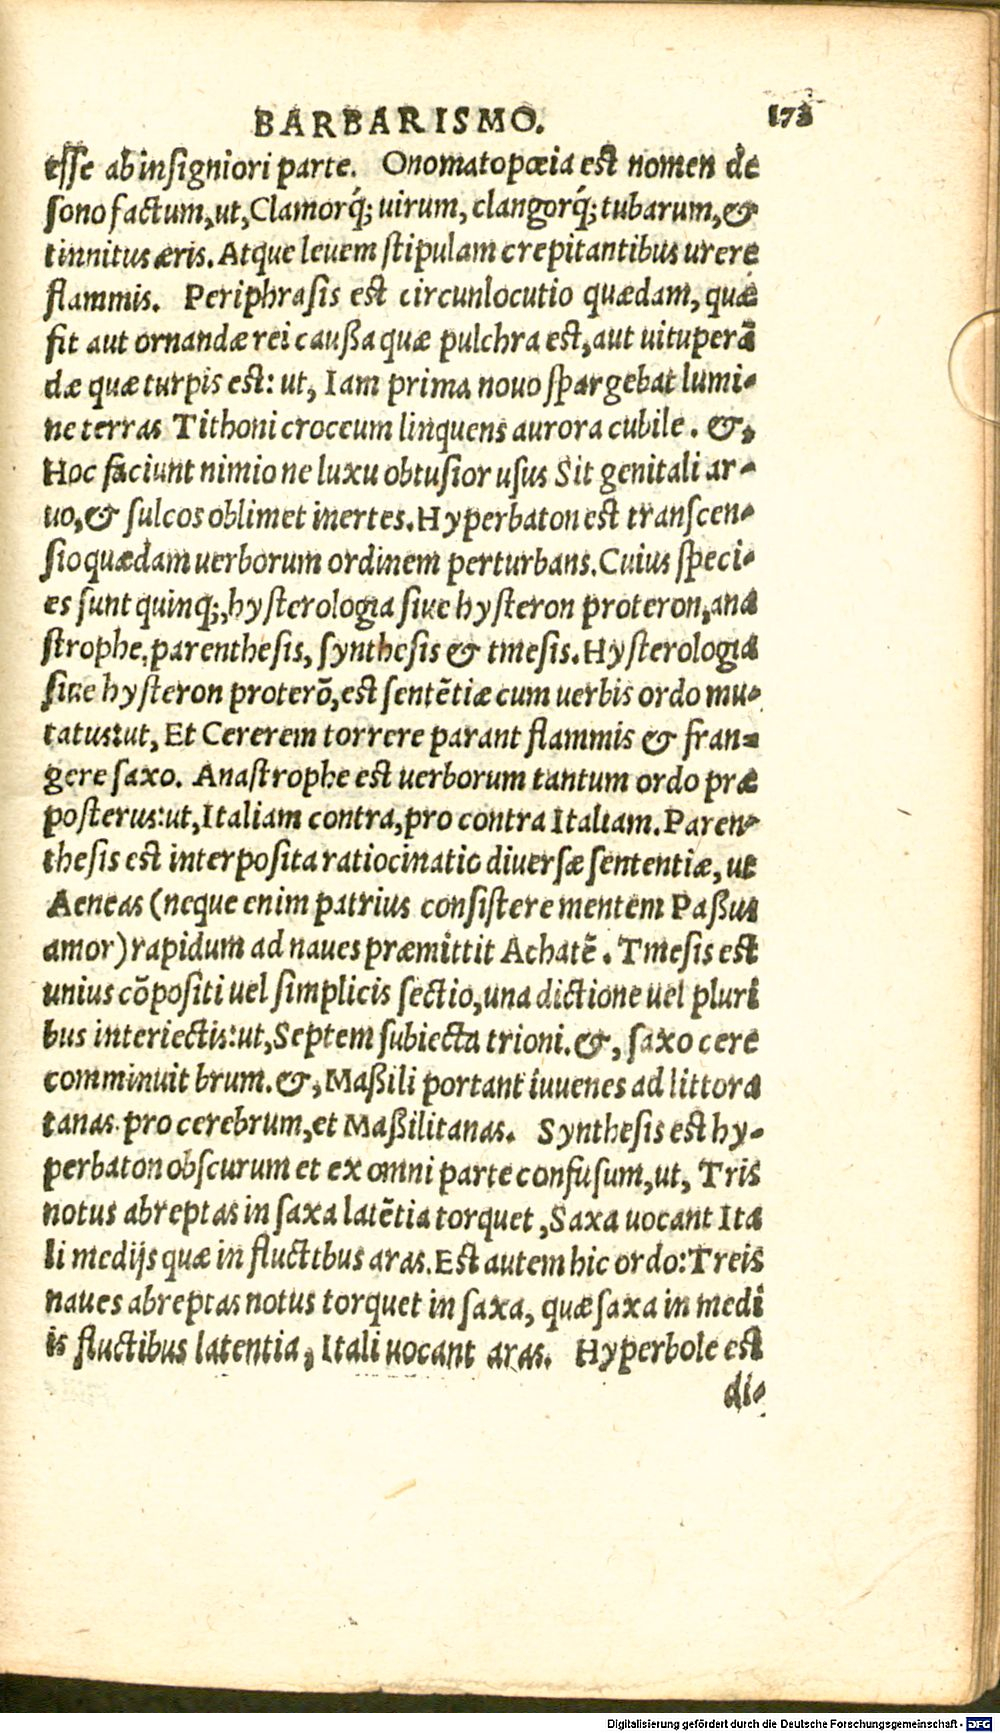 BARBARISMO. 173
esse ab insigniori parte. Onomatopœia est nomen de
sono factum, ut, Clamorq́; uirum, clangorq́; tubarum, &
tinnitus æris. Atque leuem stipulam crepitantibus urere
flammis. Periphrasis est circunlocutio quædam, quæ
fit aut ornandæ rei caußa quæ pulchra est, aut uituperā
dæ quæ turpis est: ut, Iam prima nouo spargebat lumi-
ne terras Tithoni croceum linquens aurora cubile. &,
Hoc faciunt nimio ne luxu obtusior usus Sit genitali ar-
uo, & sulcos oblimet inertes. Hyperbaton est transcen-
sio quædam uerborum ordinem perturbans. Cuius speci-
es sunt quinq;, hysterologia siue hysteron proteron, ana
strophe, parenthesis, synthesis & tmesis. Hysterologia
siue hysteron proterō, est sentētiæ cum uerbis ordo mu-
tatus: ut, Et Cererem torrere parant flammis & fran-
gere saxo. Anastrophe est uerborum tantum ordo præ
posterus: ut, Italiam contra, pro contra Italiam. Paren-
thesis est interposita ratiocinatio diuersæ sententiæ, ut
Aeneas (neque enim patrius consistere mentem Paßus
amor) rapidum ad naues præmittit Achatē. Tmesis est
unius cōpositi uel simplicis sectio, una dictione uel pluri
bus interiectis: ut, Septem subiecta trioni. &, saxo cere
comminuit brum. &, Maßili portant iuuenes ad littora
tanas. pro cerebrum, et Maßilitanas. Synthesis est hy-
perbaton obscurum et ex omni parte confusum, ut, Tris
notus abreptas in saxa latētia torquet, Saxa uocant Ita
li medijs quæ in fluctibus aras. Est autem hic ordo: Treis
naues abreptas notus torquet in saxa, quæ saxa in medi
is fluctibus latentia, Itali uocant aras. Hyperbole est
di-
Digitalisierung gefördert durch die Deutsche Forschungsgemeinschaft - DFG